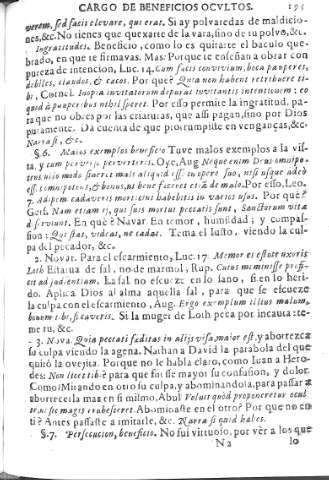 CARGO DE BENEFICIOS OCVLTOS. 195
verem, sed facis elevare, qui erat. Si ay polvaredas de maldicio-
nes, &c. No tienes que quexarte de la vara, sino de tu polvo, &c.
Ingratitudes. Beneficio, como lo es quitarte el baculo que-
brado, en que te firmavas. Mas: Porque te enseñan a obrar con
pureza de intencion, Luc. 14. Cum facis convivium, voca pauperes,
debiles, claudos, & cæcos. Por què? Quia non habent retribuere ti-
bi, Cornel. Inopia invitatorum depurat invitantis intentionem; eo
quod à pauperibus nihil speret. Por esso permite la ingratitud, pa-
ra que no obres por las criaturas, que assi pagan, sino por Dios
puramente. Da cuenta de que prorrumpiste en venganças, &c.
Narrasi, &c.
§. 6. Malos exemplos beneficio Tuve malos exemplos a la vis-
ta, y cum perverso perverteris. Oye, Aug Neque enim Deus omnipo-
tens ullo modo sineret mali aliquid esse in opere suo, nisi usque adeò
esset omnipotens, & bonus, ut bene faceret etiã de malo. Por esso, Leo.
7. Adipem cadaveris mortivini habebitis in varios usos. Por què?
Gers. Nam etiam ij, qui suis mortui peccatis sunt, Sanctorum vitæ
deserviunt. En què? Navar. En temor, humildad; y compas-
sion: Qui stat, videat, ne cadat. Tema el Iusto, viendo la cul-
pa del pecador, &c.
2. Novar. Para el escarmiento, Luc. 17. Memor es estote uxoris
Loth Estatua de sal, no de marmol, Rup. Cuius meminisse profi-
cit ad iudentiam. La sal no escueze en lo sano, si en lo heri-
do. Aplica Dios al alma aquella sal, para que se escueze
la culpa con el escarmiento, Aug. Ergo exemplum illius malum,
bonum tibi, si caveris. Si la muger de Loth peca por incauta: te-
me tu, &c.
3. Nova. Quia peccati fæditas in alijs visa, maior est, y aborrezca
su culpa viendo la agena. Nathan a David la parabola del que
quitò la ovejita. Porque no le habla claro, como Iuan a Hero-
des: Non licet tibi? para que fuesse mayor su confusion, y dolor.
Como? Mirando en otro su culpa, y abominandola, para passar a
aborrecerla mas en si mismo. Abul Voluit quòd proponeretur ocul
tè, ut sic magis erubesceret. Abominaste en el otro? Por que no en
ti? Antes passaste a imitarle, &c. Narra si quid habes.
§. 7. Persecucion, beneficio. No fui virtuoso, por vèr a los que
N 2 lo